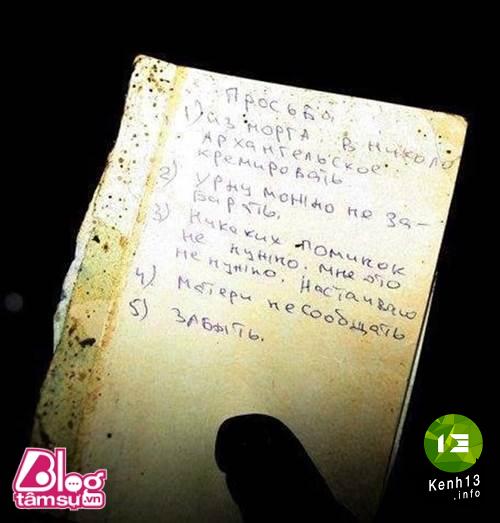 Просьба
1) из морга в Николо
Архангельское
кремировать
2) Урну можно не за-
бирать.
3) Никаких поминок
не нужно. Мне это
не нужно. Настаиваю
4) Матери не сообщать
5) Забыть.
Blog
tâmsự.vn
Kenh13
.info